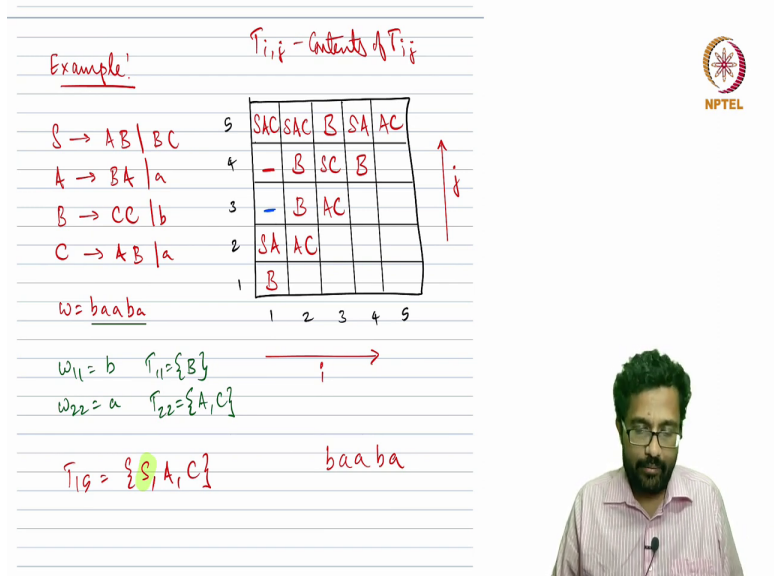 T i,j - Contents of T ij
Example:
NPTEL
S → AB | BC
A → BA | a
B → CC | b
C → AB | a
w = baaba
5 SAC SAC B SA AC
4 - B SC B
3 - B AC
2 SA AC
1 B
1 2 3 4 5
j
i
w11 = b T11 = {B}
w22 = a T22 = {A, C}
T15 = {S, A, C}
baaba